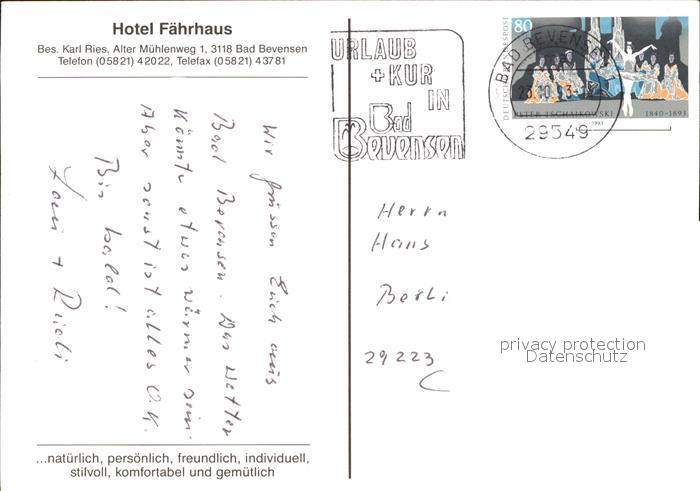 Hotel Fährhaus
Bes. Karl Ries, Alter Mühlenweg 1, 3118 Bad Bevensen
Telefon (05821) 42022, Telefax (05821) 43781
Wir grüssen Euch aus
Bad Bevensen. Das Wetter
könnte etwas wärmer sein.
Aber sonst ist alles O.K.
Bis bald!
+ Rudi
...natürlich, persönlich, freundlich, individuell,
stilvoll, komfortabel und gemütlich
URLAUB
+ KUR
IN
Bad
Bevensen
BAD BEVENSEN
29549
80
DEUTSCHE BUNDESPOST
PETER TSCHAIKOWSKI 1840-1893
1993
Herrn
Hans
29223
privacy protection
Datenschutz